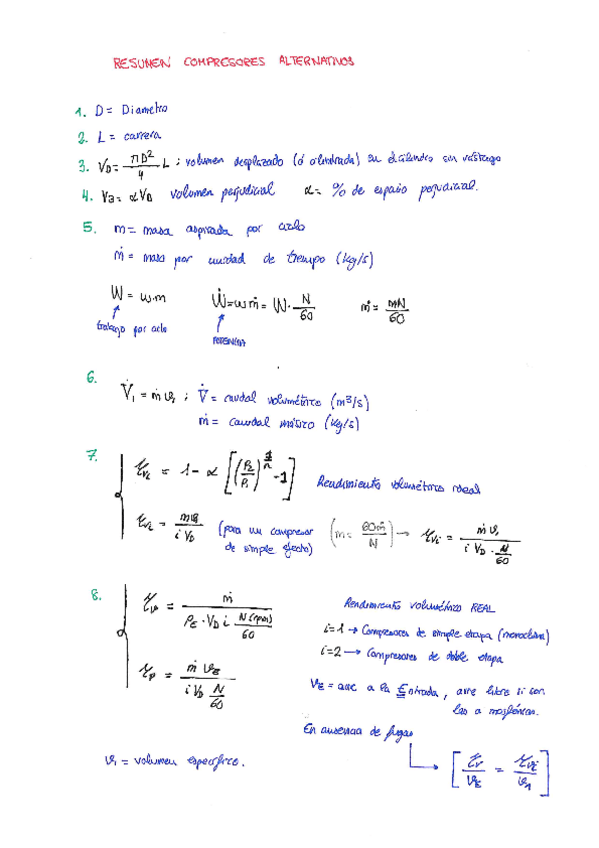 RESUMEN COMPRESORES ALTERNATIVOS
1. D = Diametro
2. L = carrera
3. V_D = πD²/4 L ; volumen desplazado (ó cilindrada) en cilindro sin vástago
4. V_3 = αV_D volumen perjudicial α = % de espacio perjudicial.
5. m = masa aspirada por ciclo
ṁ = masa por unidad de tiempo (kg/s)
W = w·m Ẇ = wṁ = W · N/60 ṁ = mN/60
trabajo por ciclo POTENCIA
6. V̇₁ = ṁ v₁ ; V̇ = caudal volumétrico (m³/s)
ṁ = caudal másico (kg/s)
7. η_vi = 1 - α [(P₂/P₁)^(1/n) - 1] Rendimiento volumétrico ideal
η_vi = m v₁ / i V_D (para un compresor de simple efecto) (m = 60ṁ/N) → η_vi = ṁ v₁ / i V_D · N/60
8. η_v = ṁ / ρ_E · V_D i N(rpm)/60 Rendimiento volumétrico REAL
i=1 → Compresores de simple etapa
i=2 → Compresores de doble etapa
η_v = ṁ v_E / i V_D N/60
v_E = aire a la Entrada, aire libre si con.
las atmosféricas.
En ausencia de fugas
v₁ = volumen específico. [η_v/v_E = η_vi/v₁]